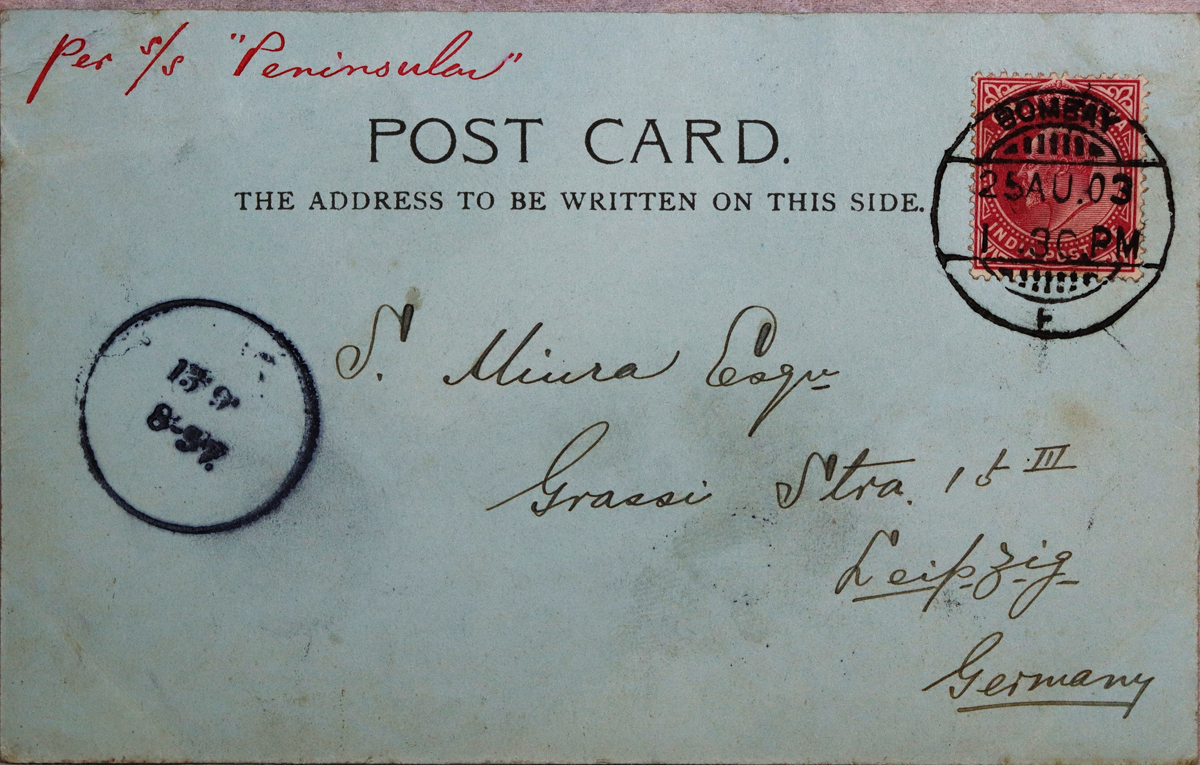 Per s/s "Peninsular"
POST CARD.
THE ADDRESS TO BE WRITTEN ON THIS SIDE.
BOMBAY
25 AU.03
1.30 PM
INDIA POST
F
13 9
8-9 V.
S. Miura Esqr
Grassi Stra. 15 III
Leipzig
Germany